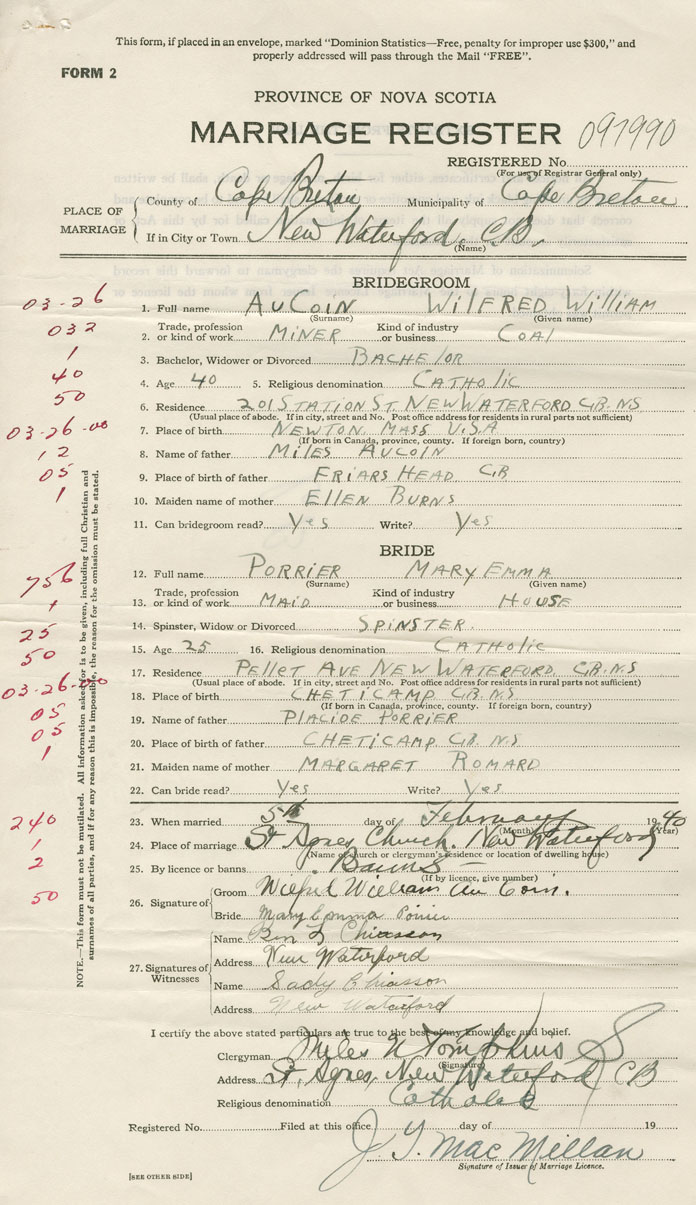 This form, if placed in an envelope, marked "Dominion Statistics—Free, penalty for improper use $300," and
properly addressed will pass through the Mail "FREE".
FORM 2
PROVINCE OF NOVA SCOTIA
MARRIAGE REGISTER 091990
REGISTERED No.
(For use of Registrar General only)
PLACE OF MARRIAGE
County of Cape Breton Municipality of Cape Breton
If in City or Town New Waterford, C.B.
(Name)
BRIDEGROOM
03-26
1. Full name AuCoin Wilfred William
(Surname) (Given name)
032
2. Trade, profession or kind of work Miner Kind of industry or business Coal
1
3. Bachelor, Widower or Divorced Bachelor
40
4. Age 40 5. Religious denomination Catholic
50
6. Residence 201 Station St New Waterford C.B. N.S
(Usual place of abode. If in city, street and No. Post office address for residents in rural parts not sufficient)
03-26-00
7. Place of birth Newton Mass U.S.A
(If born in Canada, province, county. If foreign born, country)
12
8. Name of father Miles AuCoin
05
9. Place of birth of father Friars Head CB
1
10. Maiden name of mother Ellen Burns
11. Can bridegroom read? Yes Write? Yes
BRIDE
756
12. Full name Porrier Mary Emma
(Surname) (Given name)
13. Trade, profession or kind of work Maid Kind of industry or business House
25
14. Spinster, Widow or Divorced Spinster
50
15. Age 25 16. Religious denomination Catholic
03-26-00
17. Residence Pellet Ave New Waterford C.B. N.S
(Usual place of abode. If in city, street and No. Post office address for residents in rural parts not sufficient)
05
18. Place of birth Cheticamp C.B. N.S
(If born in Canada, province, county. If foreign born, country)
05
19. Name of father Placide Porrier
1
20. Place of birth of father Cheticamp C.B. N.S
21. Maiden name of mother Margaret Romard
22. Can bride read? Yes Write? Yes
240
23. When married 5th day of February 1940
(Month) (Year)
1
24. Place of marriage St Agnes Church, New Waterford
(Name of church or clergyman's residence or location of dwelling house)
2
25. By licence or banns Banns
(If by licence, give number)
50
26. Signature of
Groom Wilfred William Au Coin.
Bride Mary Emma Poirier
27. Signatures of Witnesses
Name Chiasson
Address New Waterford
Name Sady Chiasson
Address New Waterford
NOTE.—This form must not be mutilated. All information asked for is to be given, including full Christian and
surnames of all parties, and if for any reason this is impossible, the reason for the omission must be stated.
I certify the above stated particulars are true to the best of my knowledge and belief.
Clergyman Miles N Tompkins
(Signature)
Address St. Agnes, New Waterford CB
Religious denomination Catholic
Registered No. Filed at this office day of 19
J. Y. MacMillan
Signature of Issuer of Marriage Licence.
[SEE OTHER SIDE]